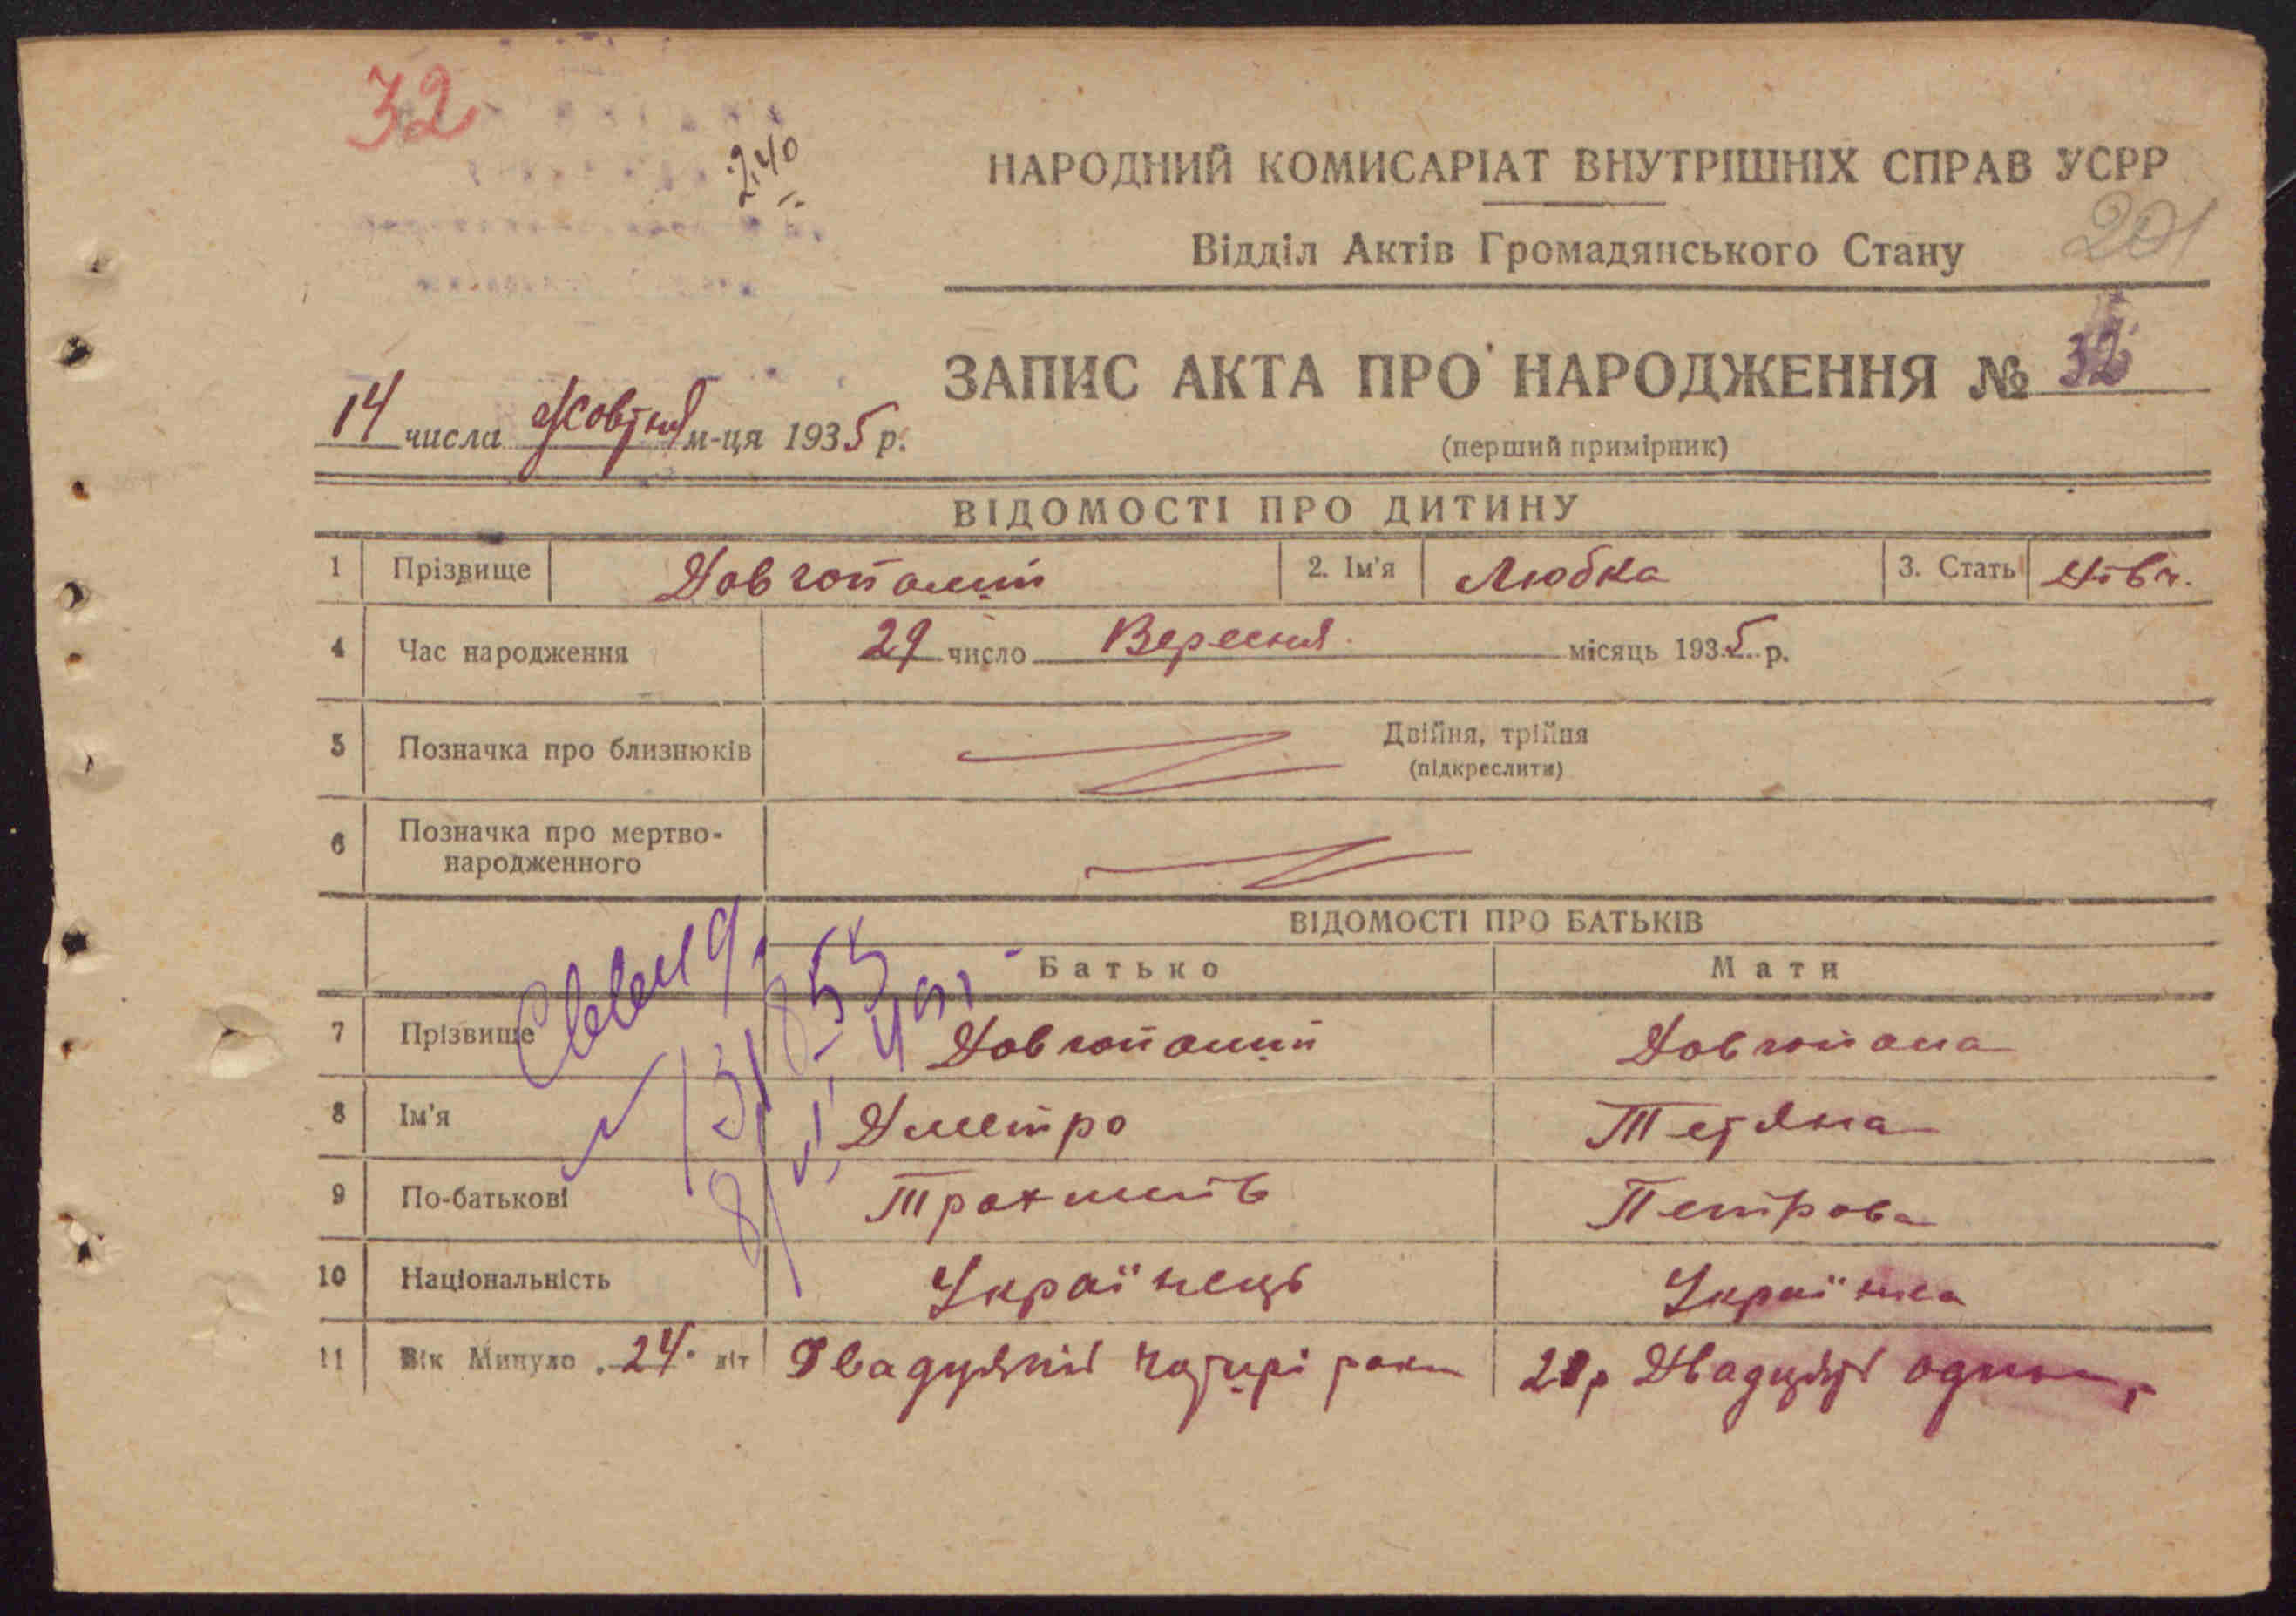 32
240
НАРОДНИЙ КОМИСАРІАТ ВНУТРІШНІХ СПРАВ УСРР
201
Відділ Актів Громадянського Стану
ЗАПИС АКТА ПРО НАРОДЖЕННЯ № 32
14 числа Жовтня м-ця 1935 р.
(перший примірник)
ВІДОМОСТІ ПРО ДИТИНУ
1 Прізвище Довгопалий 2. Ім'я Любка 3. Стать Дівч.
4 Час народження 29 число Вересня місяць 1935 р.
5 Позначка про близнюків Двійня, трійня
(підкреслити)
6 Позначка про мертво-
народженного
ВІДОМОСТІ ПРО БАТЬКІВ
Батько Мати
7 Прізвище Довгопалий Довгопала
8 Ім'я Дметро Тетяна
9 По-батькові Трохимів Петрова
10 Національність Українець Українка
11 Вік Минуло 24 літ Двадцять чотирі роки 21р Двадцять